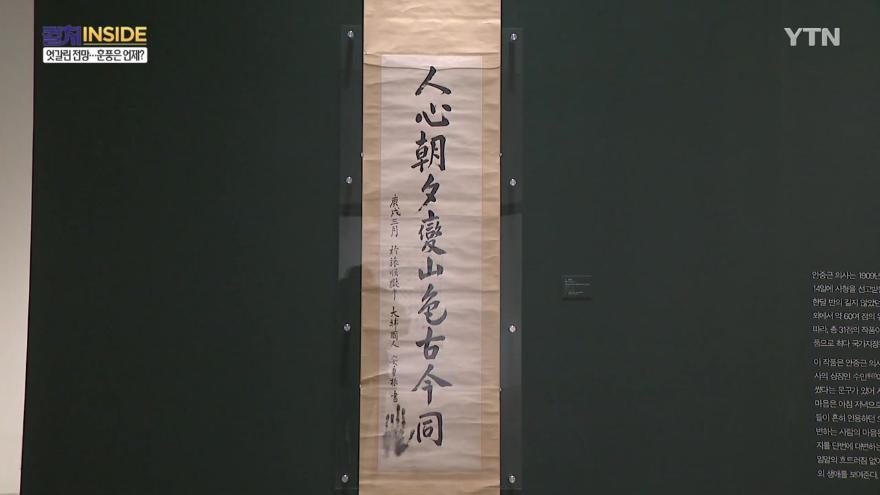 컬처INSIDE
엇갈린 전망…훈풍은 언제?
YTN
人心朝夕變山色古今同
庚戌三月 於旅順獄中 大韓國人 安重根書
안중근 의사는 1909년
14일에 사형을 선고받
한달 반의 길지 않았던
외에서 약 60여 점의 유
따라, 총 31점의 작품이
품으로 최다 국가지정
이 작품은 안중근 의사
사의 상징인 수인
썼다는 문구가 있어
마음은 아침 저녁으로
들이 흔히 인용하던
변하는 사람의 마음
지를 단번에 대변하는
일말의 흐트러짐 없이
의 생애를 보여준다.